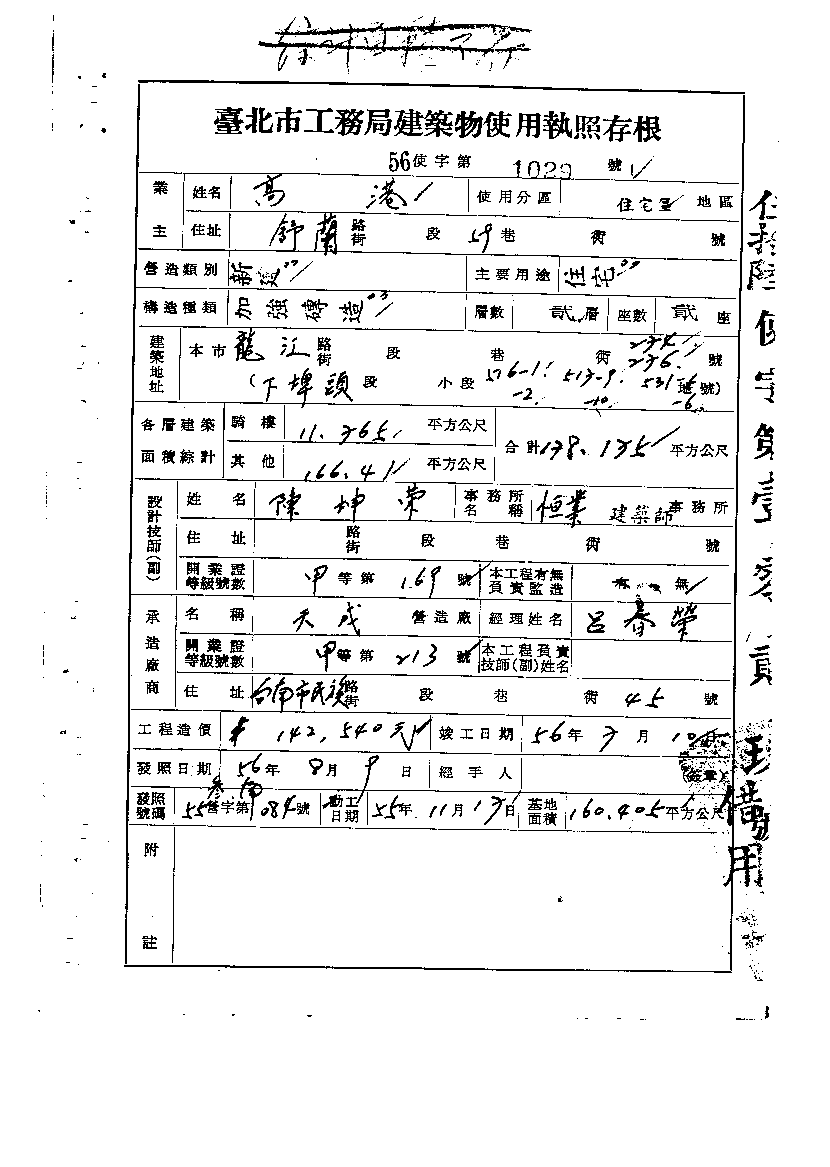 臺北市工務局建築物使用執照存根
56使字第 1029 號
業主 姓名 高 港 使用分區 住宅區 地區
住址 舒蘭 路街 段 59巷 衖 號
營造類別 新建 主要用途 住宅
構造種類 加強磚造 層數 貳層 座數 貳座
建築地址 本市 龍江 路街 段 巷 衖 234. 236. 號
(下埤頭段 小段 576-1. 513-9. 531-5 地號)
-2. -10. -6.
各層建築面積綜計 騎樓 11.765 平方公尺 合計 178.175 平方公尺
其他 166.41 平方公尺
設計技師(副) 姓名 陳坤榮 事務所名稱 恒業建築師事務所
住址 路街 段 巷 衖 號
開業證等級號數 甲等第 169 號 本工程有無負責監造 有 無
承造廠商 名稱 天成 營造廠 經理姓名 呂春榮
開業證等級號數 甲等第 213 號 本工程負責技師(副)姓名
住址 台南市民族路街 段 巷 衖 45 號
工程造價 142,540元 竣工日期 56年 7月 10日
發照日期 56年 8月 9日 經手人 (簽章)
發照號碼 55營字第 084號 動工日期 55年 11月 17日 基地面積 160.405平方公尺
附註
使字第壹零
借用